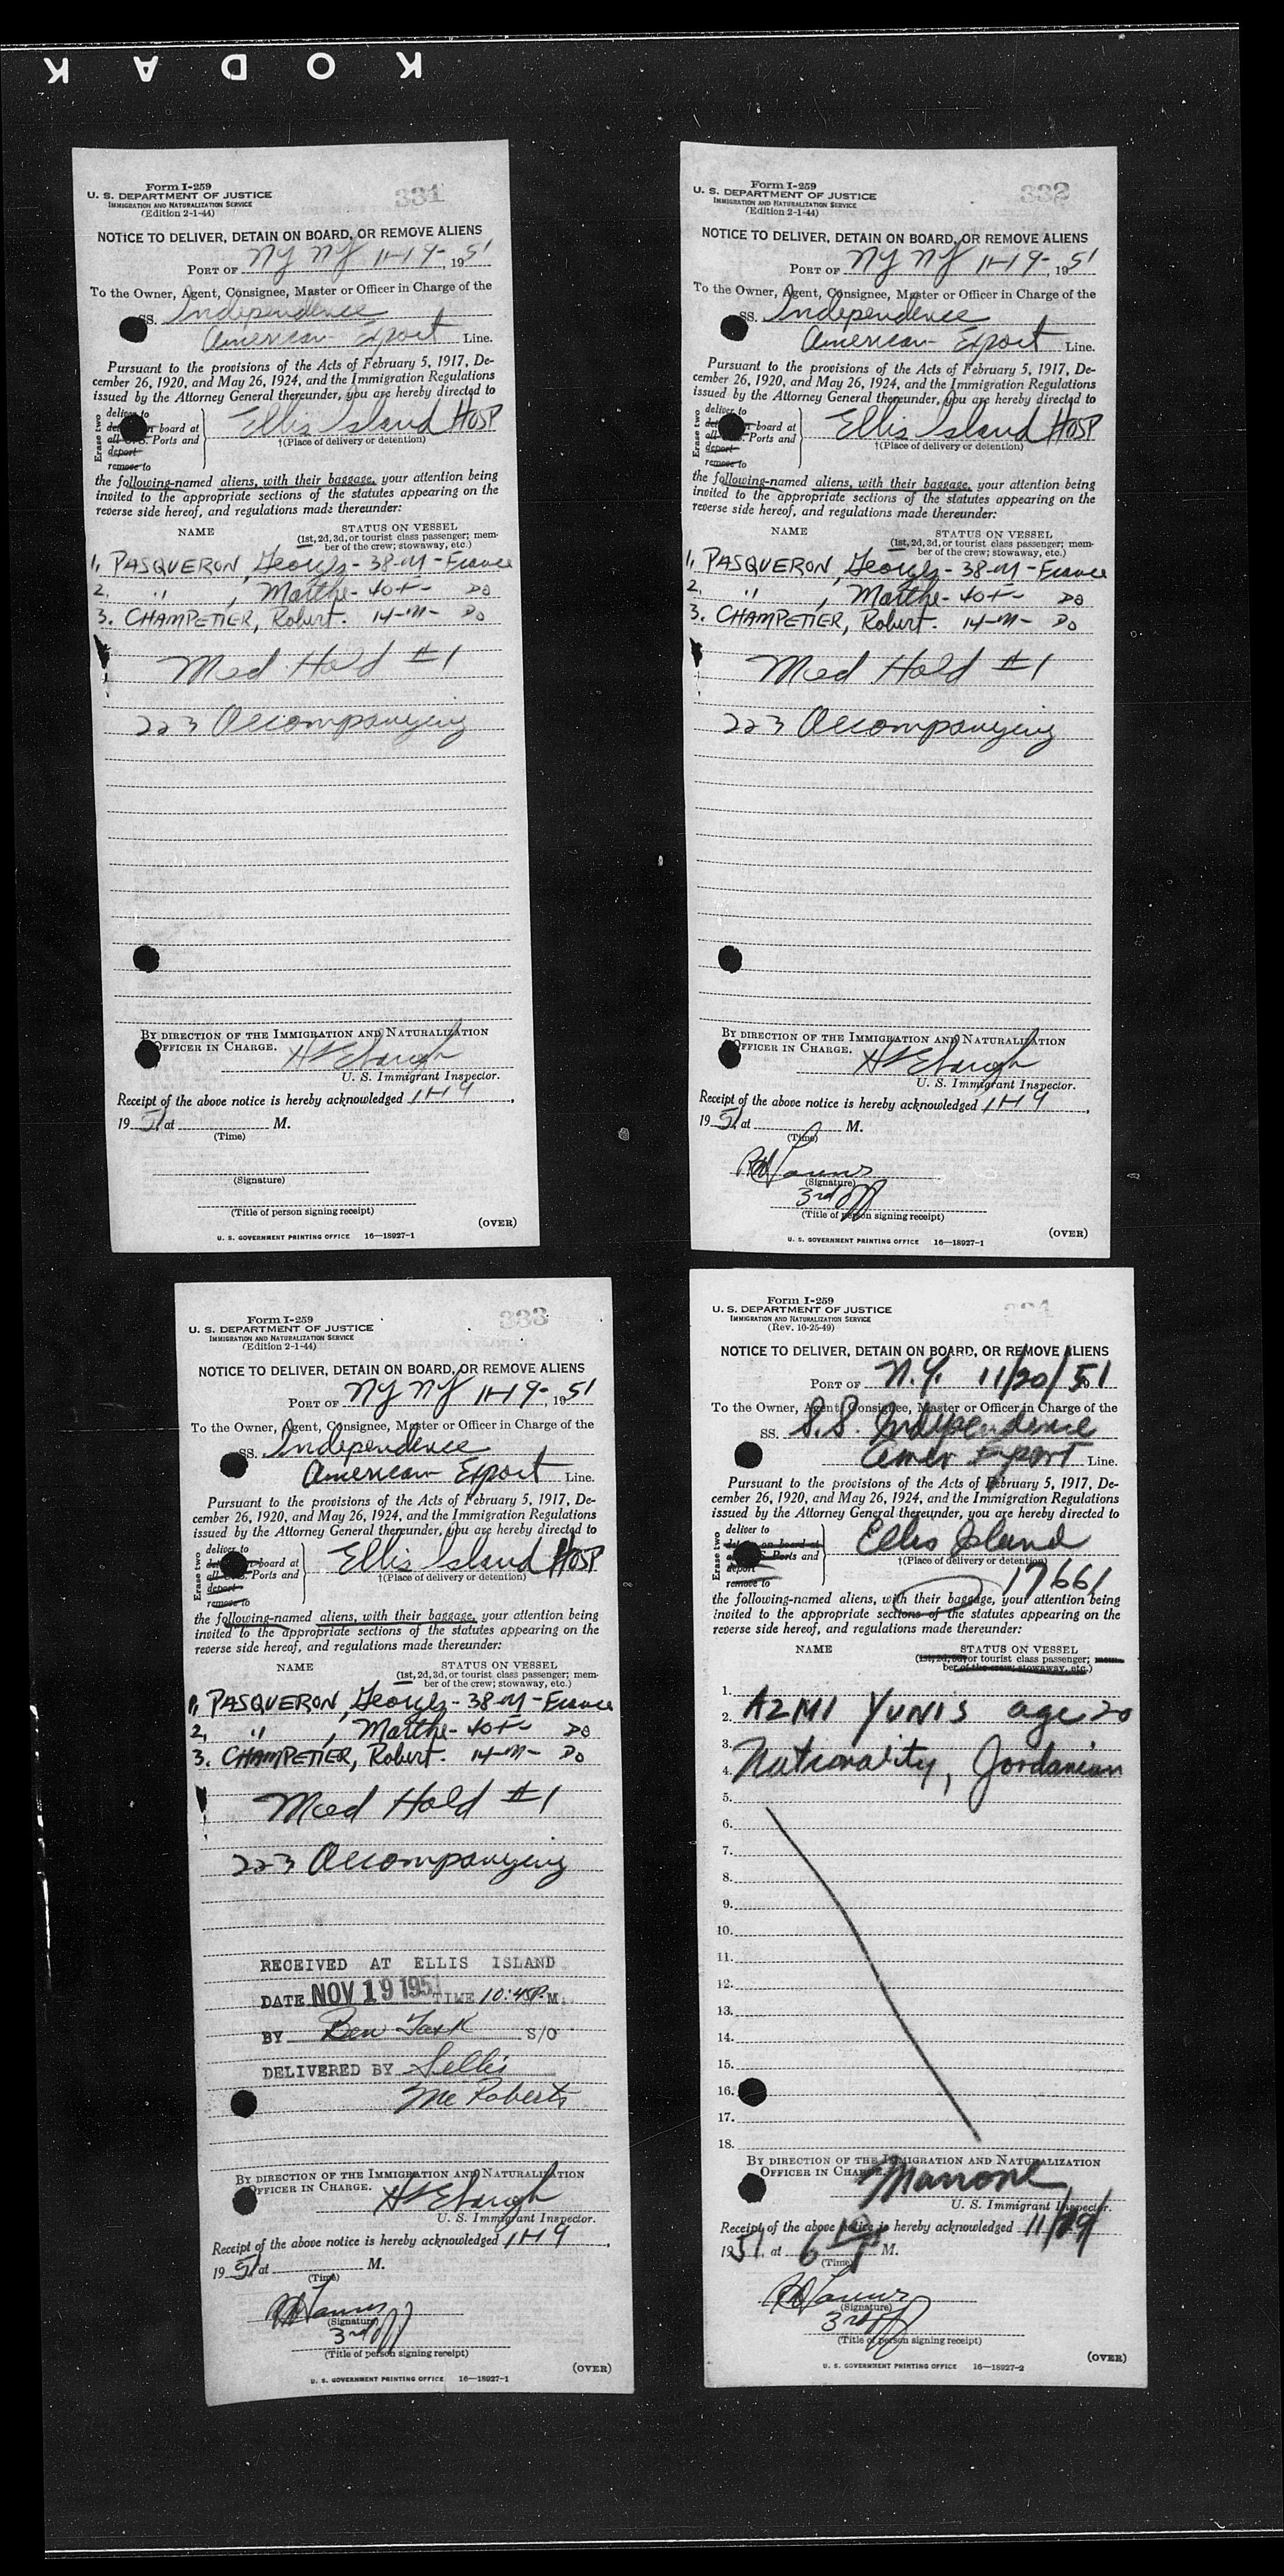 KODAK
Form I-259
U. S. DEPARTMENT OF JUSTICE
IMMIGRATION AND NATURALIZATION SERVICE
(Edition 2-1-44)
331
NOTICE TO DELIVER, DETAIN ON BOARD, OR REMOVE ALIENS
PORT OF NY NY 11-19-, 1951
To the Owner, Agent, Consignee, Master or Officer in Charge of the
SS. Independence
American Export Line.
Pursuant to the provisions of the Acts of February 5, 1917, De-
cember 26, 1920, and May 26, 1924, and the Immigration Regulations
issued by the Attorney General thereunder, you are hereby directed to
Erase two
deliver to
board at
all Ports and
deport
remove to
Ellis Island HOSP
†(Place of delivery or detention)
the following-named aliens, with their baggage, your attention being
invited to the appropriate sections of the statutes appearing on the
reverse side hereof, and regulations made thereunder:
NAME STATUS ON VESSEL
(1st, 2d, 3d, or tourist class passenger; mem-
ber of the crew; stowaway, etc.)
1. PASQUERON, Georges - 38-M - France
2. " , Marthe - 40-F- DO
3. CHAMPETIER, Robert. 14-M- DO
Med Hold #1
2 2 3 Accompanying
BY DIRECTION OF THE IMMIGRATION AND NATURALIZATION
OFFICER IN CHARGE.
U. S. Immigrant Inspector.
Receipt of the above notice is hereby acknowledged 11-19,
1951 at M.
(Time)
(Signature)
(Title of person signing receipt)
(OVER)
U. S. GOVERNMENT PRINTING OFFICE 16—18927-1
Form I-259
U. S. DEPARTMENT OF JUSTICE
IMMIGRATION AND NATURALIZATION SERVICE
(Edition 2-1-44)
332
NOTICE TO DELIVER, DETAIN ON BOARD, OR REMOVE ALIENS
PORT OF NY NY 11-19-, 1951
To the Owner, Agent, Consignee, Master or Officer in Charge of the
SS. Independence
American Export Line.
Pursuant to the provisions of the Acts of February 5, 1917, De-
cember 26, 1920, and May 26, 1924, and the Immigration Regulations
issued by the Attorney General thereunder, you are hereby directed to
Erase two
deliver to
board at
all Ports and
deport
remove to
Ellis Island HOSP
†(Place of delivery or detention)
the following-named aliens, with their baggage, your attention being
invited to the appropriate sections of the statutes appearing on the
reverse side hereof, and regulations made thereunder:
NAME STATUS ON VESSEL
(1st, 2d, 3d, or tourist class passenger; mem-
ber of the crew; stowaway, etc.)
1. PASQUERON, Georges - 38-M - France
2. " , Marthe - 40-F- DO
3. CHAMPETIER, Robert. 14-M- DO
Med Hold #1
2 2 3 Accompanying
BY DIRECTION OF THE IMMIGRATION AND NATURALIZATION
OFFICER IN CHARGE.
U. S. Immigrant Inspector.
Receipt of the above notice is hereby acknowledged 11-19,
1951 at M.
(Time)
(Signature)
3rd off
(Title of person signing receipt)
(OVER)
U. S. GOVERNMENT PRINTING OFFICE 16—18927-1
Form I-259
U. S. DEPARTMENT OF JUSTICE
IMMIGRATION AND NATURALIZATION SERVICE
(Edition 2-1-44)
333
NOTICE TO DELIVER, DETAIN ON BOARD, OR REMOVE ALIENS
PORT OF NY NY 11-19-, 1951
To the Owner, Agent, Consignee, Master or Officer in Charge of the
SS. Independence
American Export Line.
Pursuant to the provisions of the Acts of February 5, 1917, De-
cember 26, 1920, and May 26, 1924, and the Immigration Regulations
issued by the Attorney General thereunder, you are hereby directed to
Erase two
deliver to
board at
all Ports and
deport
remove to
Ellis Island HOSP
†(Place of delivery or detention)
the following-named aliens, with their baggage, your attention being
invited to the appropriate sections of the statutes appearing on the
reverse side hereof, and regulations made thereunder:
NAME STATUS ON VESSEL
(1st, 2d, 3d, or tourist class passenger; mem-
ber of the crew; stowaway, etc.)
1. PASQUERON, Georges - 38-M - France
2. " , Marthe - 40-F- DO
3. CHAMPETIER, Robert. 14-M- DO
Med Hold #1
2 2 3 Accompanying
RECEIVED AT ELLIS ISLAND
DATE NOV 19 1951 TIME 10:45P.M.
BY Ben S/O
DELIVERED BY
McRoberts
BY DIRECTION OF THE IMMIGRATION AND NATURALIZATION
OFFICER IN CHARGE.
U. S. Immigrant Inspector.
Receipt of the above notice is hereby acknowledged 11-19
1951 at M.
(Time)
(Signature)
3rd off
(Title of person signing receipt)
(OVER)
U. S. GOVERNMENT PRINTING OFFICE 16—18927-1
Form I-259
U. S. DEPARTMENT OF JUSTICE
IMMIGRATION AND NATURALIZATION SERVICE
(Rev. 10-25-49)
334
NOTICE TO DELIVER, DETAIN ON BOARD, OR REMOVE ALIENS
PORT OF N.Y. 11/20/51
To the Owner, Agent, Consignee, Master or Officer in Charge of the
SS. S.S. Independence
Amer Export Line.
Pursuant to the provisions of the Acts of February 5, 1917, De-
cember 26, 1920, and May 26, 1924, and the Immigration Regulations
issued by the Attorney General thereunder, you are hereby directed to
Erase two
deliver to
on board at
Ports and
deport
remove to
Ellis Island
†(Place of delivery or detention)
17661
the following-named aliens, with their baggage, your attention being
invited to the appropriate sections of the statutes appearing on the
reverse side hereof, and regulations made thereunder:
NAME STATUS ON VESSEL
(1st, 2d, 3d, or tourist class passenger; mem-
ber of the crew; stowaway, etc.)
1.
2. AZMI YUNIS age 20
3.
4. Nationality, Jordanian
5.
6.
7.
8.
9.
10.
11.
12.
13.
14.
15.
16.
17.
18.
BY DIRECTION OF THE IMMIGRATION AND NATURALIZATION
OFFICER IN CHARGE. Marrone
U. S. Immigrant Inspector.
Receipt of the above notice is hereby acknowledged 11/19/
1951, at 6 M.
(Time)
(Signature)
3rd off
(Title of person signing receipt)
(OVER)
U. S. GOVERNMENT PRINTING OFFICE 16—18927-2